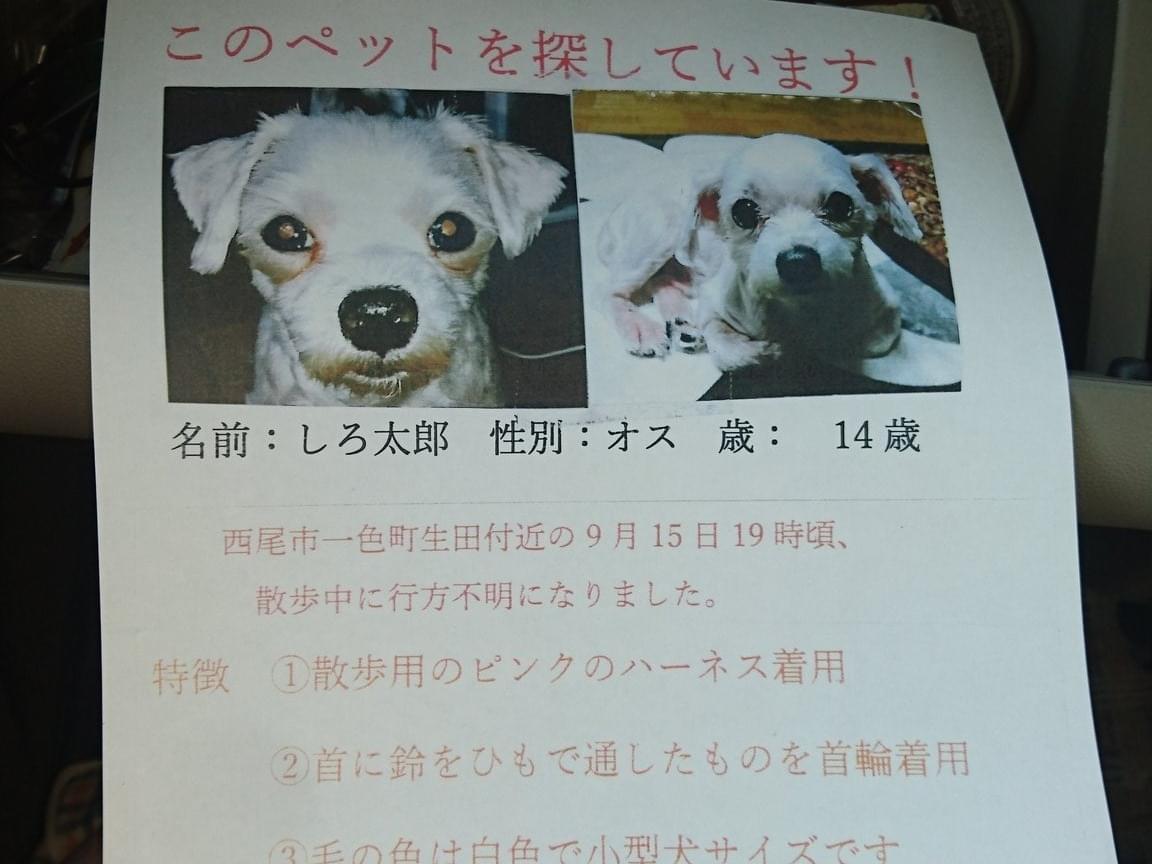 このペットを探しています！
名前：しろ太郎　性別：オス　歳：　14歳
西尾市一色町生田付近の9月15日19時頃、
散歩中に行方不明になりました。
特徴　①散歩用のピンクのハーネス着用
②首に鈴をひもで通したものを首輪着用
③毛の色は白色で小型犬サイズです